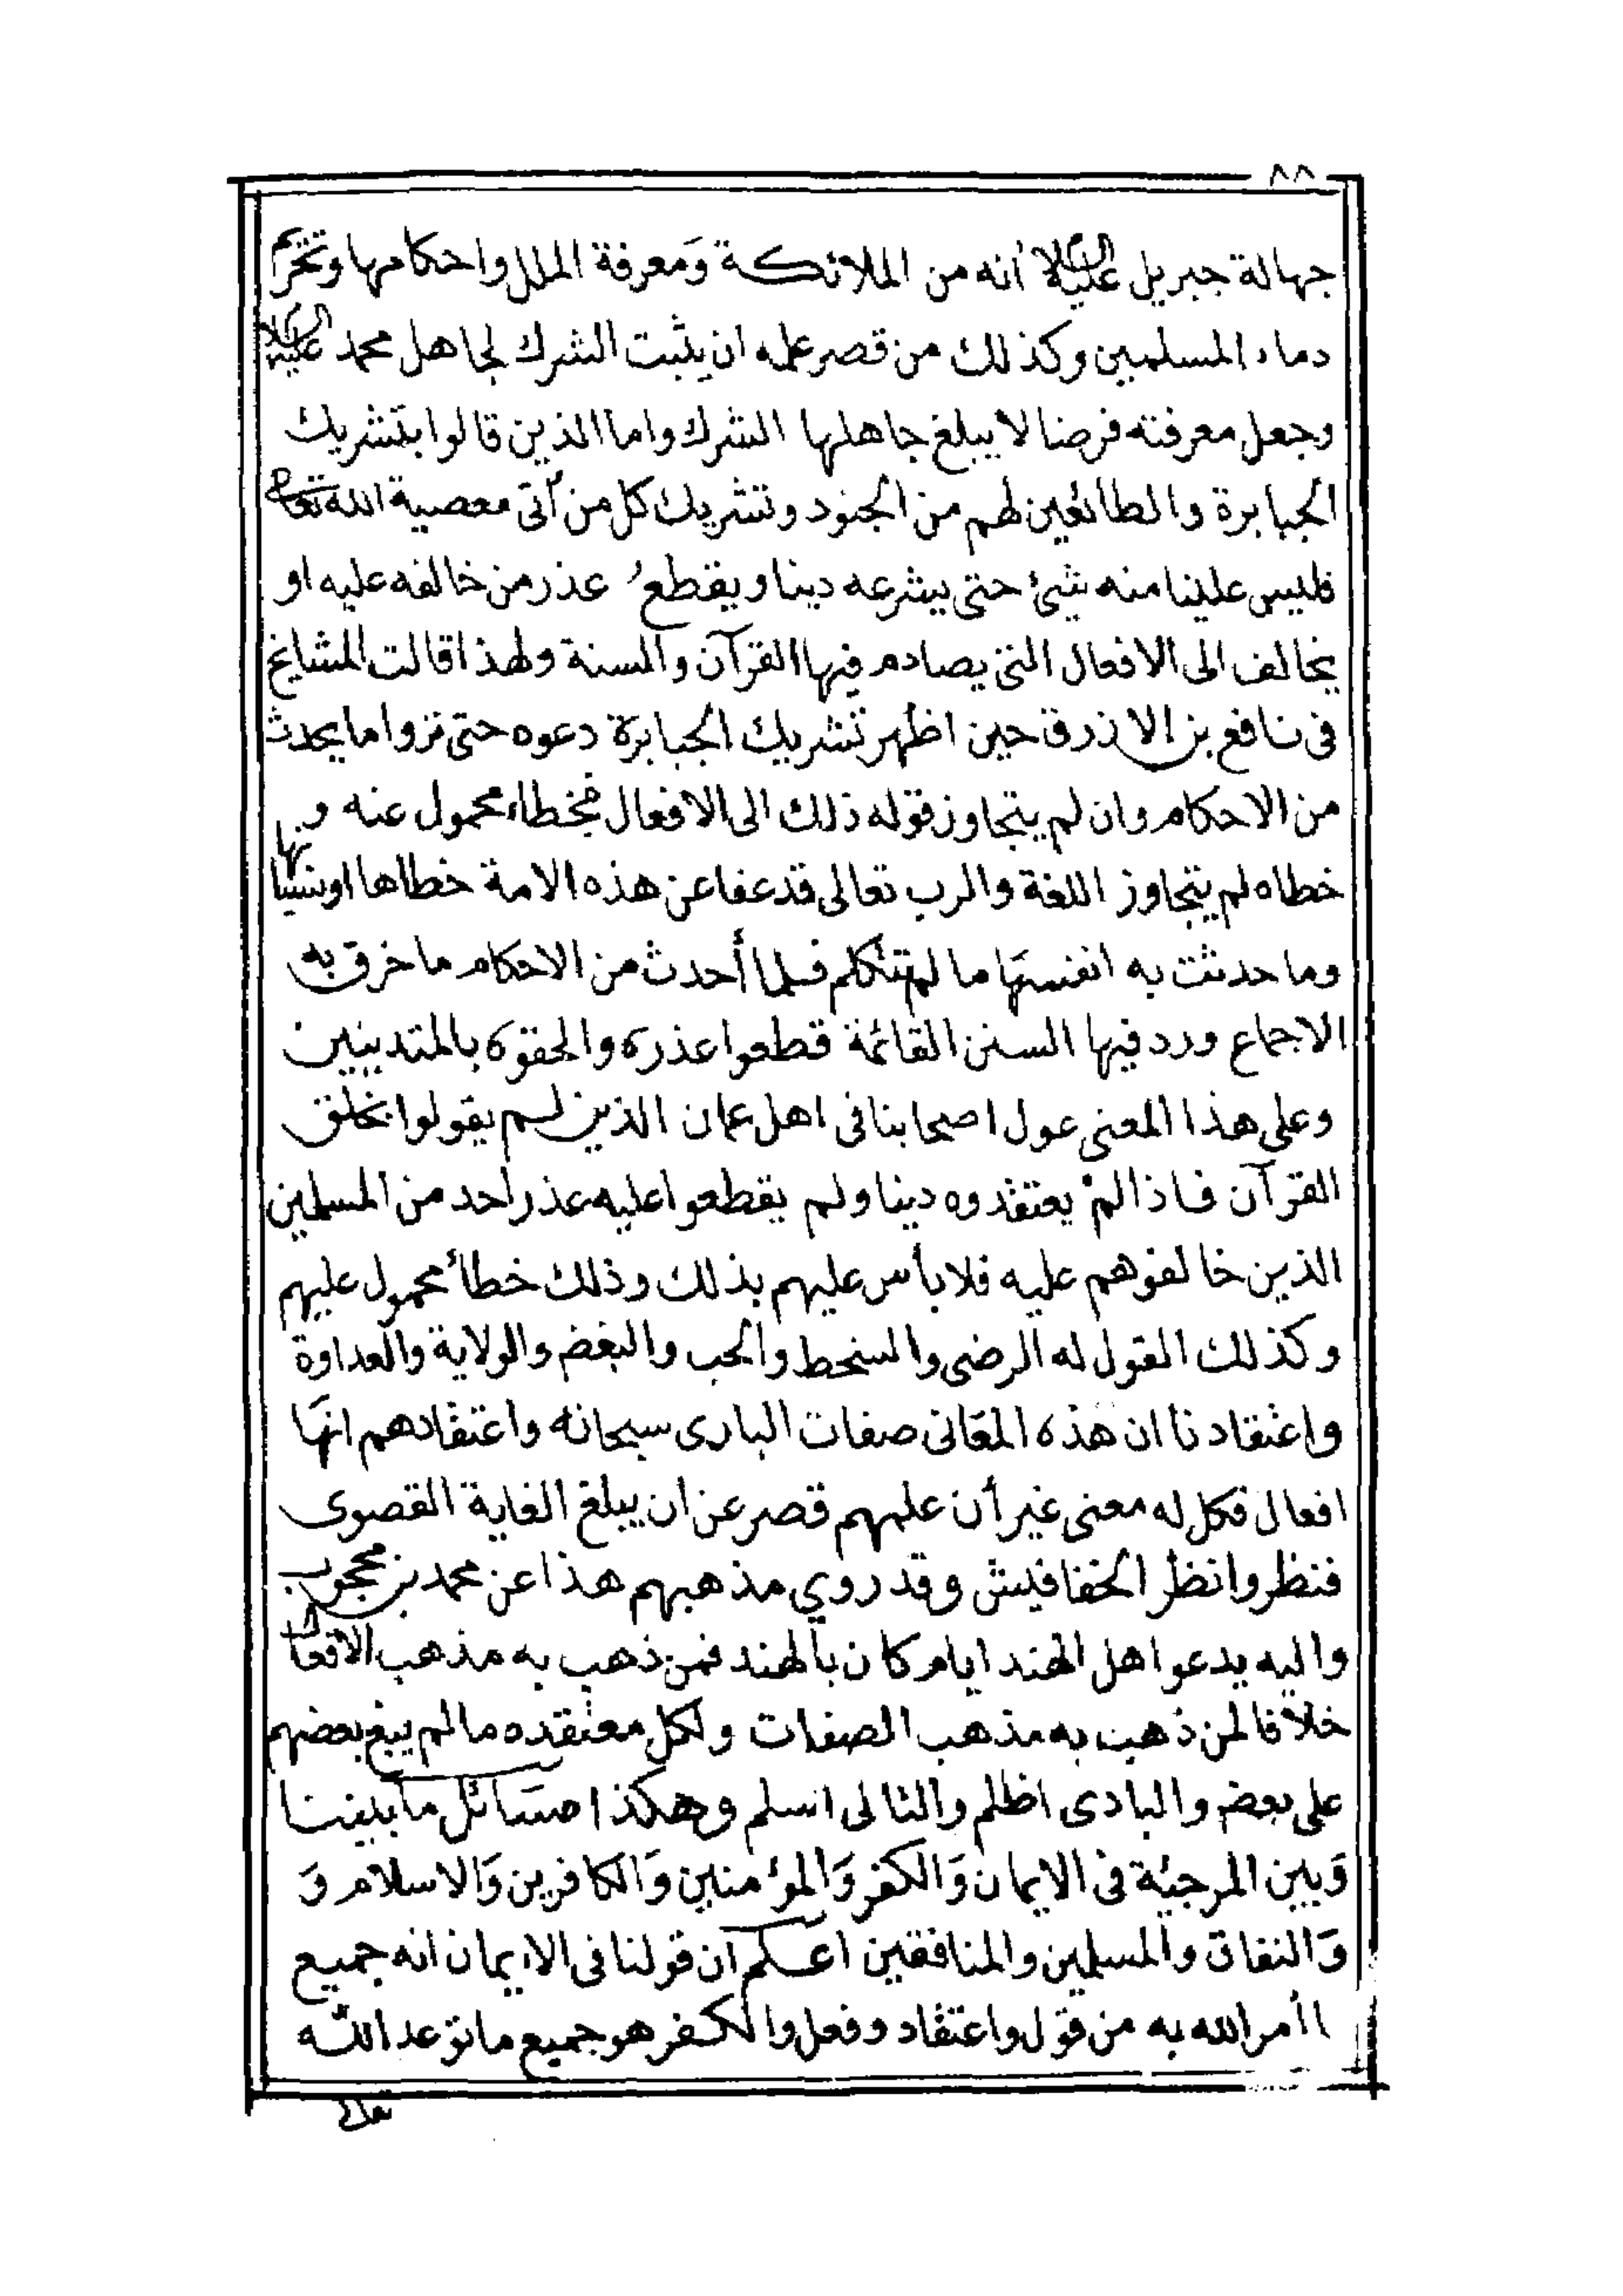 ٨٨
جهالة جبريل عليه السلام أنه من الملائكة وَمعرفة الملل واحكامها وتحريم
دماء المسلمين وكذلك من قصر علمه ان يثبت الشرك لجاهل محمد عليه السلام
وجعل معرفته فرضا لا يبلغ جاهلها الشرك واما الذين قالوا بتشريك
الجبابرة والطائعين لهم من الجنود وتشريك كل من أتى معصية الله تعالى
فليس علينا منه شئ حتى يشرعه دينا ويقطعُ عذر من خالفه عليه او
يخالف الى الافعال التى يصادم فيها القرآن والسنة ولهذا قالت المشايخ
فى نافع بن الازرق حين اظهر تشريك الجبابرة دعوه حتى تروا ما يحدث
من الاحكام وان لم يتجاوز قوله ذلك الى الافعال فخطاء محمول عنه و
خطاه لم يتجاوز اللغة والرب تعالى قد عفا عن هذه الامة خطاها ونسيانها
وما حدثت به انفسها ما لم تتكلم فلما أحدث من الاحكام ما خرق به
الاجماع ورد فيها السنن القائمة قطعوا عذره والحقوه بالمتدينين
وعلى هذا المعنى عول اصحابنا فى اهل عمان الذين لم يقولوا بخلق
القرآن فاذا لمْ يعتقدوه دينا ولم يقطعوا عليه عذر احد من المسلمين
الذين خالفوهم عليه فلا بأس عليهم بذلك وذلك خطأ محمول عليهم
وكذلك القول له الرضى والسخط والحب والبغض والولاية والعداوة
واعتقادنا ان هذه المعانى صفات البارى سبحانه واعتقادهم انها
افعال فكل له معنى غير أن علمهم قصر عن ان يبلغ الغاية القصوى
فنظروا نظر الخفافيش وقد روي مذهبهم هذا عن محمد بن محبوب
واليه يدعوا اهل الهند ايام كان بالهند فمن ذهب به مذهب الافعال
خلافا لمن ذهب به مذهب الصفات ولكل معتقده ما لم يبغ بعضهم
على بعض والبادى اظلم والتالى اسلم وهكذا مسائل ما بيننا
وَبين المرجئة فى الايمان وَالكفر وَالمؤمنين وَالكافرين وَالاسلام وَ
وَالنفاق والمسلمين والمنافقين اعلم أن قولنا فى الايمان انه جميع
ا أمر الله به من قول واعتقاد وفعل والكفر هو جميع ما توعد الله